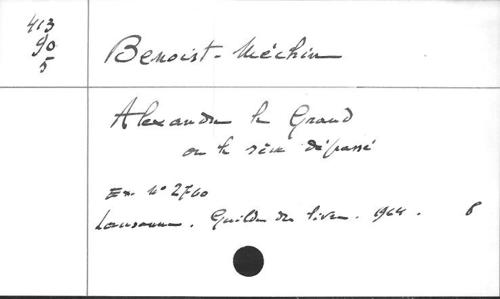 413
90
5
Benoist-Méchin
Alexandre le Grand
ou le rêve dépassé
Ex. N° 2760
Lausanne. Guilde du livre. 1964. 8